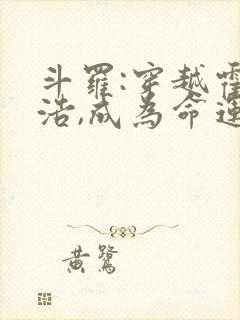 斗羅:穿越霍
浩,成為命運
黃鷺